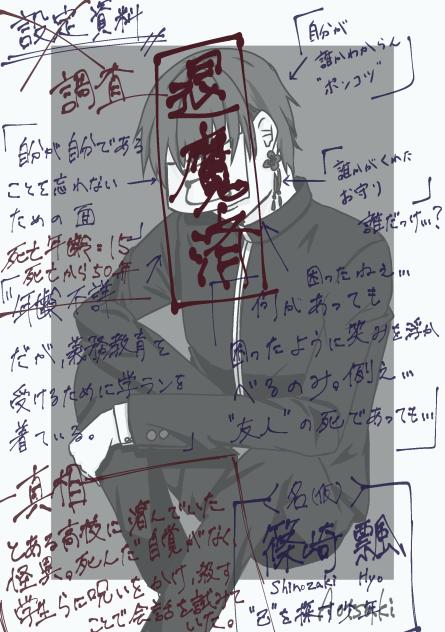 設定資料
調査
退魔済
「自分が
誰かわからん
"ポンコツ"」
「自分が自分である
ことを忘れない
ための面」
「誰かがくれた
お守り
誰だっけ…?」
死亡年齢:15
死亡から50年
「年齢不詳
だが、義務教育を
受けるために学ランを
着ている。」
「困ったねぇ…
何があっても
困ったように笑みを浮か
べるのみ。例え…
"友人"の死であっても…」
真相
とある高校に潜んでいた
怪異。死んだ自覚がなく、
学生らに呪いをかけ、殺す
ことで会話を試みて
いた。
名(仮)
篠崎 飄
Shinozaki Hyo
"己"を探す少年